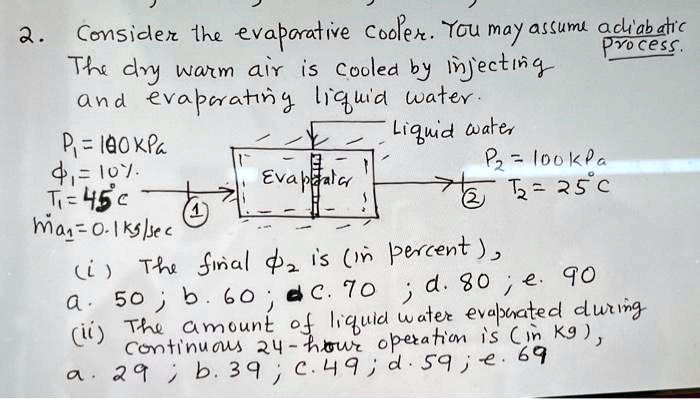 2. Consider the evaporative cooler. You may assume adiabatic process.
The dry warm air is cooled by injecting
and evaporating liquid water.
Liquid water
P₁ = 100 kPa
ϕ₁ = 10%
T₁ = 45°C
ṁa₁ = 0.1 kg/sec
1
Evaporator
P₂ = 100 kPa
2 T₂ = 25°C
(i) The final ϕ₂ is (in percent),
a. 50 ; b. 60 ; c. 70 ; d. 80 ; e. 90
(ii) The amount of liquid water evaporated during
continuous 24-hour operation is (in kg),
a. 29 ; b. 39 ; c. 49 ; d. 59 ; e. 69